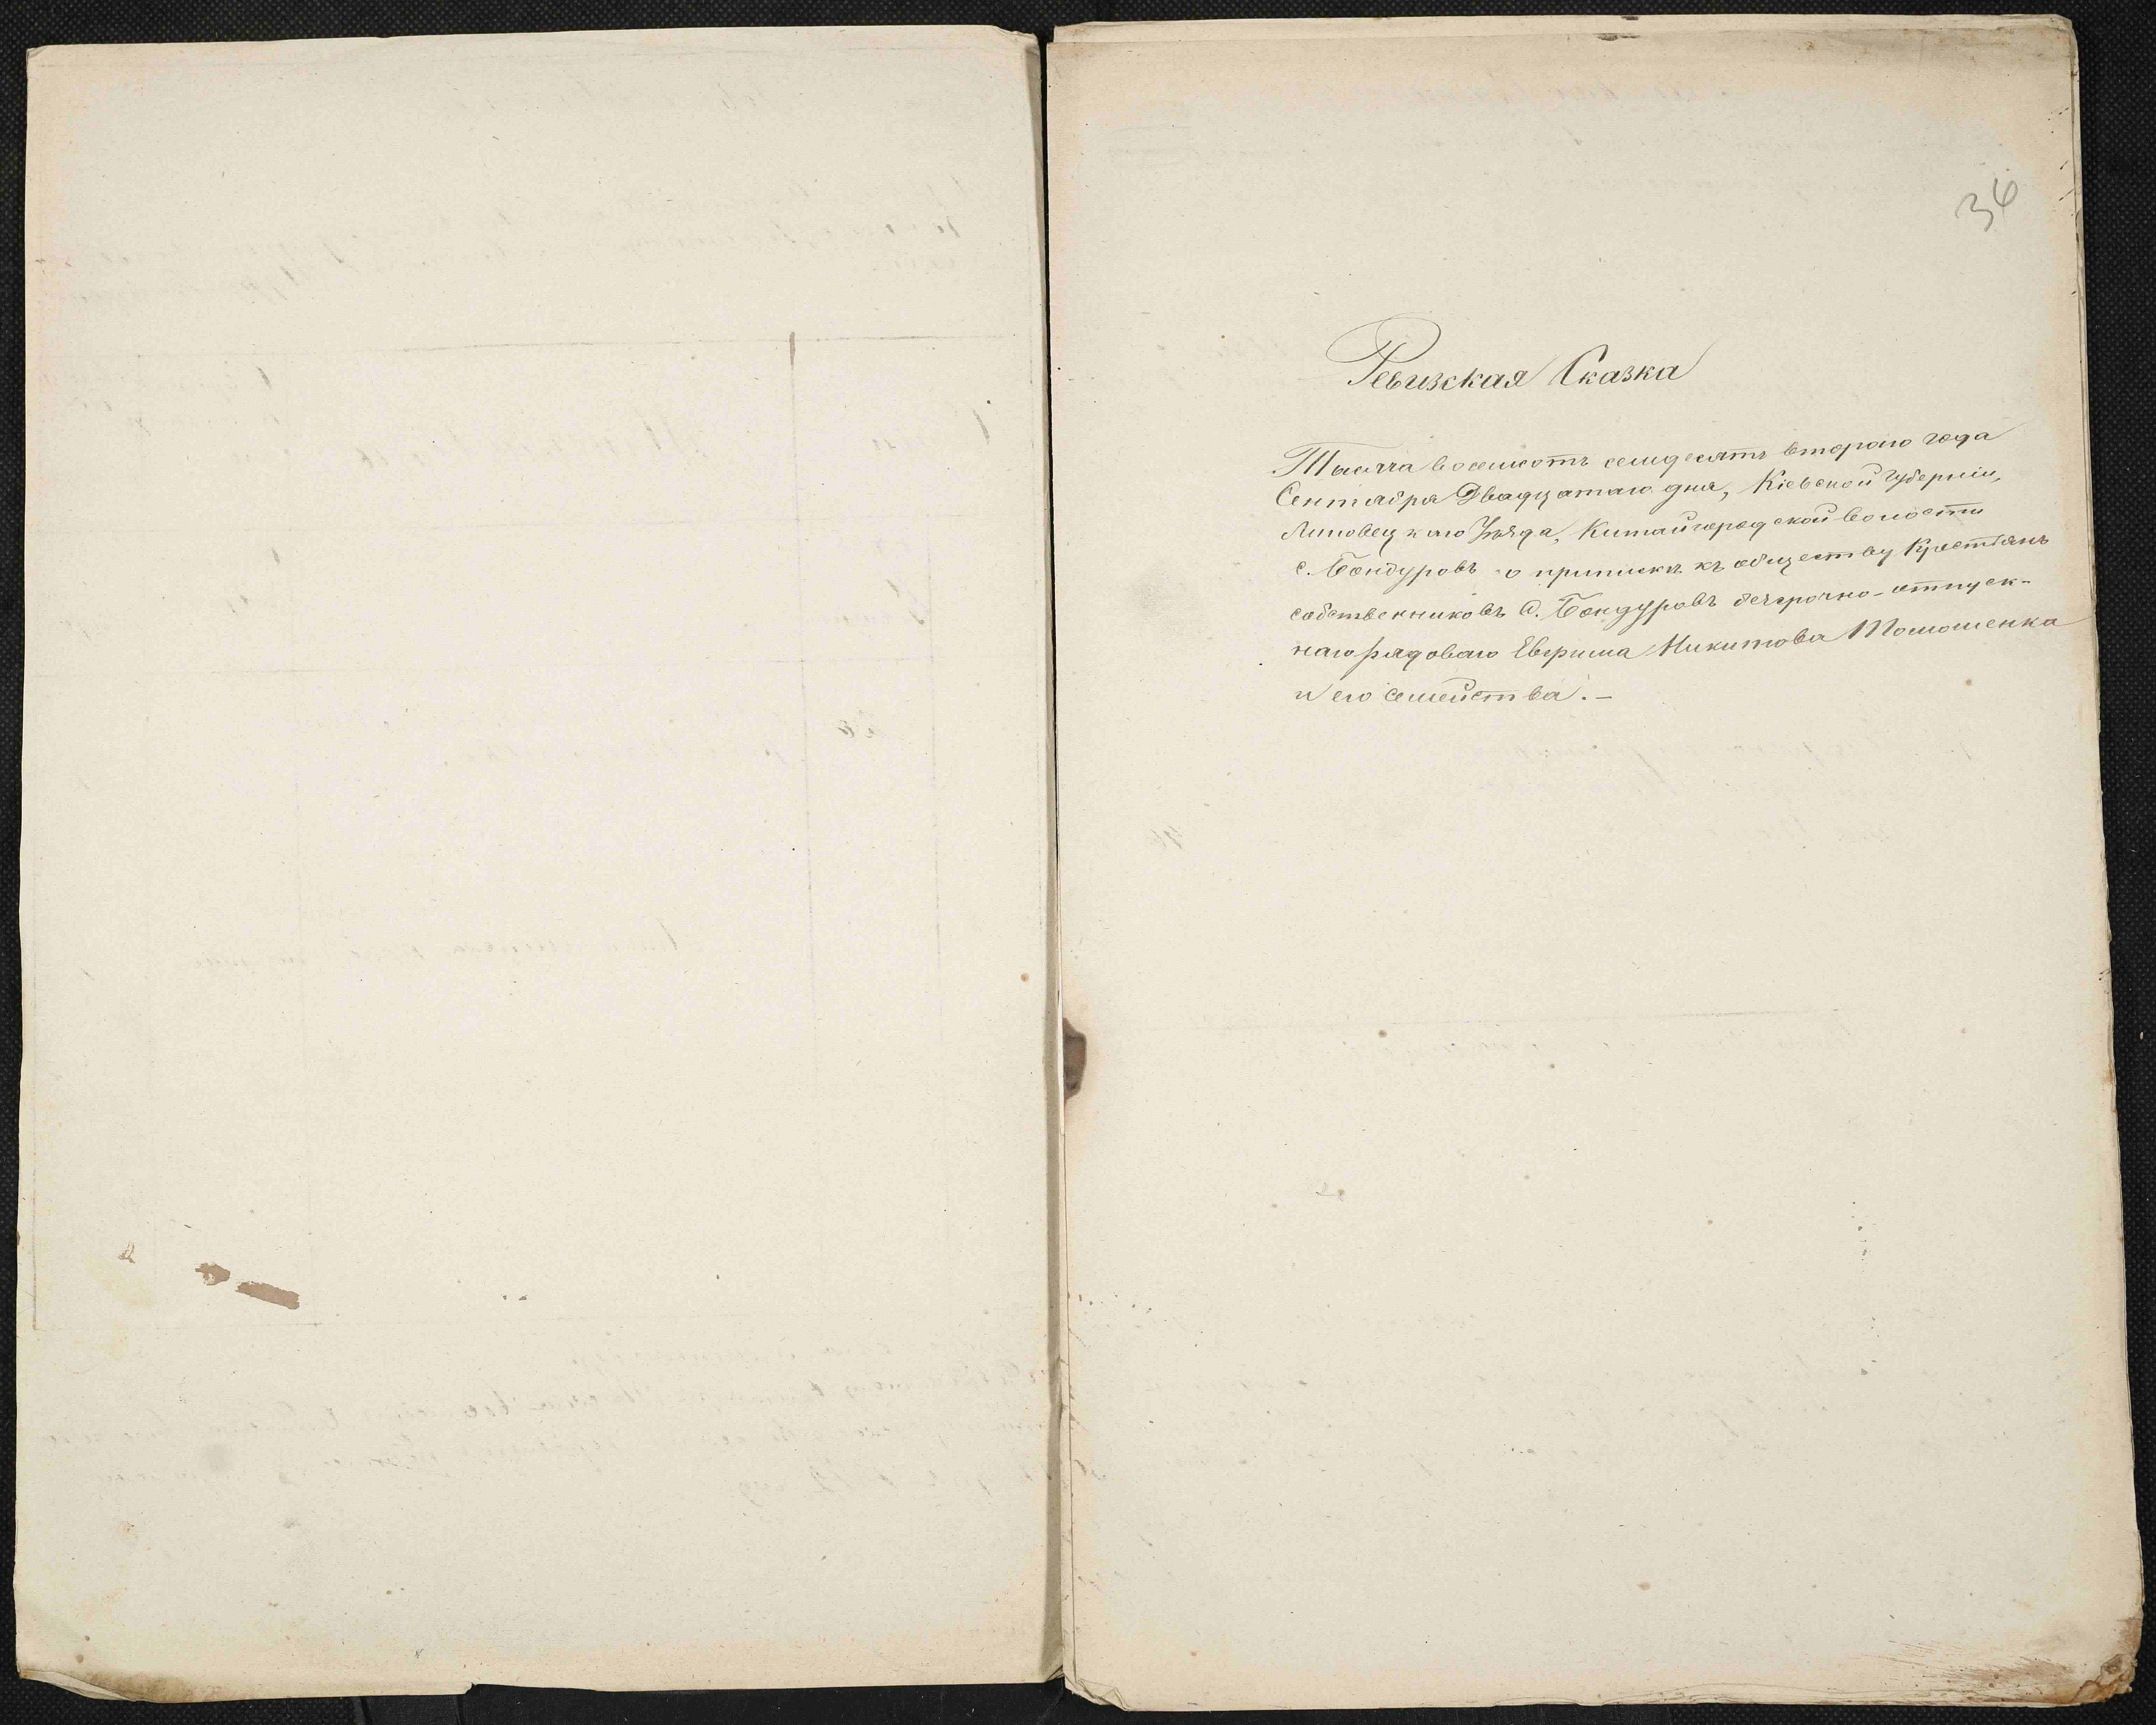 36
Ревизская Сказка
Тысяча восемсотъ семдесятъ втораго года
Сентября Двадцатаго дня, Кіевской Губерніи,
Липовецкаго Уѣзда, Китайгородской волости
с. Бондуровъ о припискѣ къ обществу Крестьянъ
собственниковъ С. Бондуровъ безсрочно-отпуск-
наго рядоваго Ефрима Никитова Томошенка
и его семейства.-